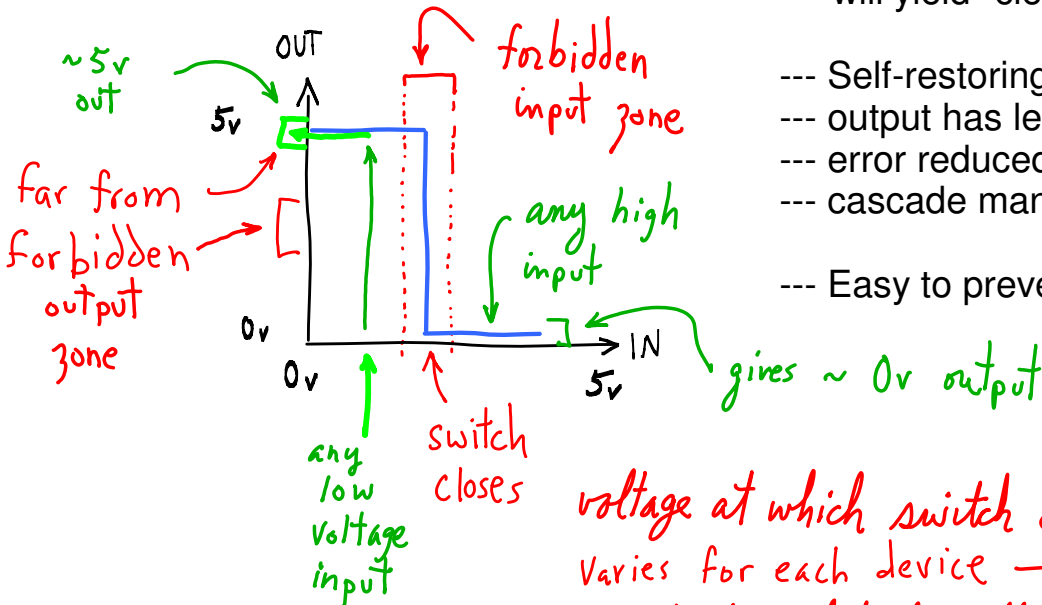 will yield
--- Self-restoring
--- output has
--- error reduced
--- cascade
--- Easy to
OUT
~5v
out
5v
forbidden
input zone
far from
forbidden
output
zone
any high
input
0v
IN
0v
5v
gives ~ 0v output
any
low
voltage
input
switch
closes
voltage at which switch
varies for each device —